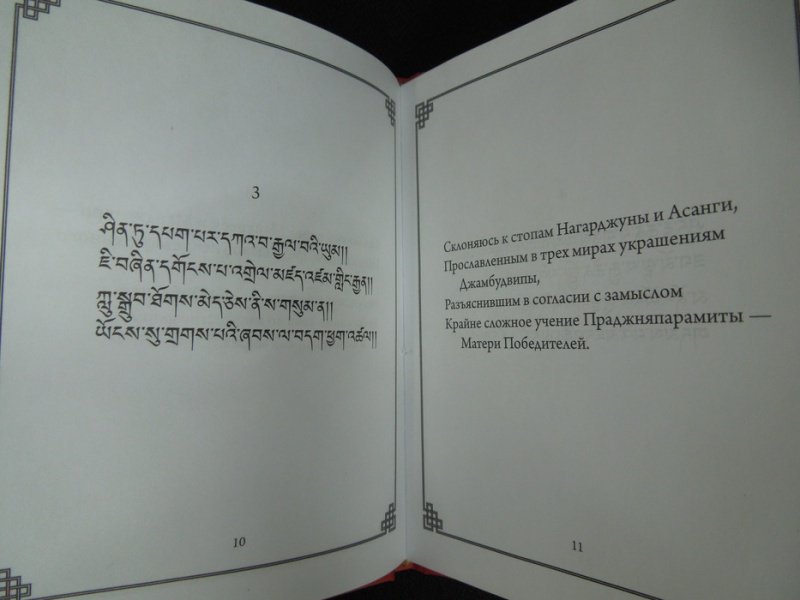 3
ཤིན་ཏུ་དཔག་པར་དཀའ་བ་རྒྱལ་བའི་ཡུམ།།
ཇི་བཞིན་དགོངས་པ་འགྲེལ་མཛད་འཛམ་གླིང་རྒྱན།།
ཀླུ་སྒྲུབ་ཐོགས་མེད་ཅེས་ནི་ས་གསུམ་ན།།
ཡོངས་སུ་གྲགས་པའི་ཞབས་ལ་བདག་ཕྱག་འཚལ།།
10
Склоняюсь к стопам Нагарджуны и Асанги,
Прославленным в трех мирах украшениям
Джамбудвипы,
Разъяснившим в согласии с замыслом
Крайне сложное учение Праджняпарамиты —
Матери Победителей.
11